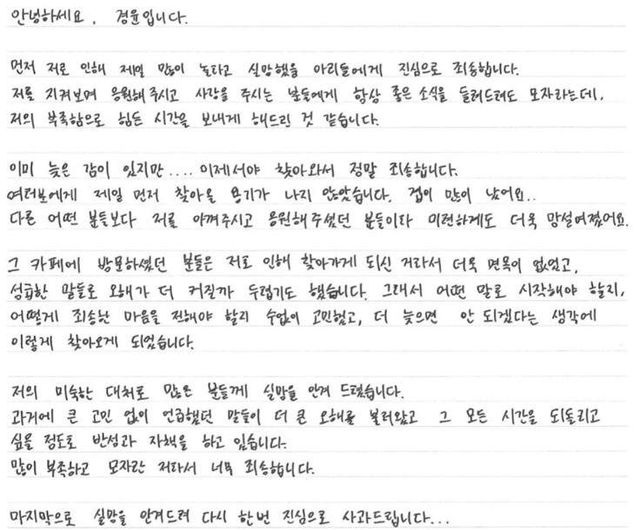 안녕하세요, 경윤입니다.
먼저 저로 인해 제일 많이 놀라고 실망했을 아리들에게 진심으로 죄송합니다.
저를 지켜보며 응원해 주시고 사랑을 주시는 분들에게 항상 좋은 소식을 들려드려도 모자라는데,
저의 부족함으로 힘든 시간을 보내게 해드린 것 같습니다.
이미 늦은 감이 있지만.... 이제서야 찾아와서 정말 죄송합니다.
여러분에게 제일 먼저 찾아올 용기가 나지 않았습니다. 겁이 많이 났어요..
다른 어떤 분들보다 저를 아껴주시고 응원해주셨던 분들이라 미련하게도 더욱 망설여졌어요.
그 카페에 방문하셨던 분들은 저로 인해 찾아가게 되신 거라서 더욱 면목이 없었고,
성급한 말들로 오해가 더 커질까 두렵기도 했습니다. 그래서 어떤 말로 시작해야 할지,
어떻게 죄송한 마음을 전해야 할지 수없이 고민했고, 더 늦으면 안 되겠다는 생각에
이렇게 찾아오게 되었습니다.
저의 미숙한 대처로 많은 분들께 실망을 안겨 드렸습니다.
과거에 큰 고민 없이 언급했던 말들이 더 큰 오해를 불러왔고 그 모든 시간을 되돌리고
싶을 정도로 반성과 자책을 하고 있습니다.
많이 부족하고 모자란 저라서 너무 죄송합니다.
마지막으로 실망을 안겨드려 다시 한번 진심으로 사과드립니다...